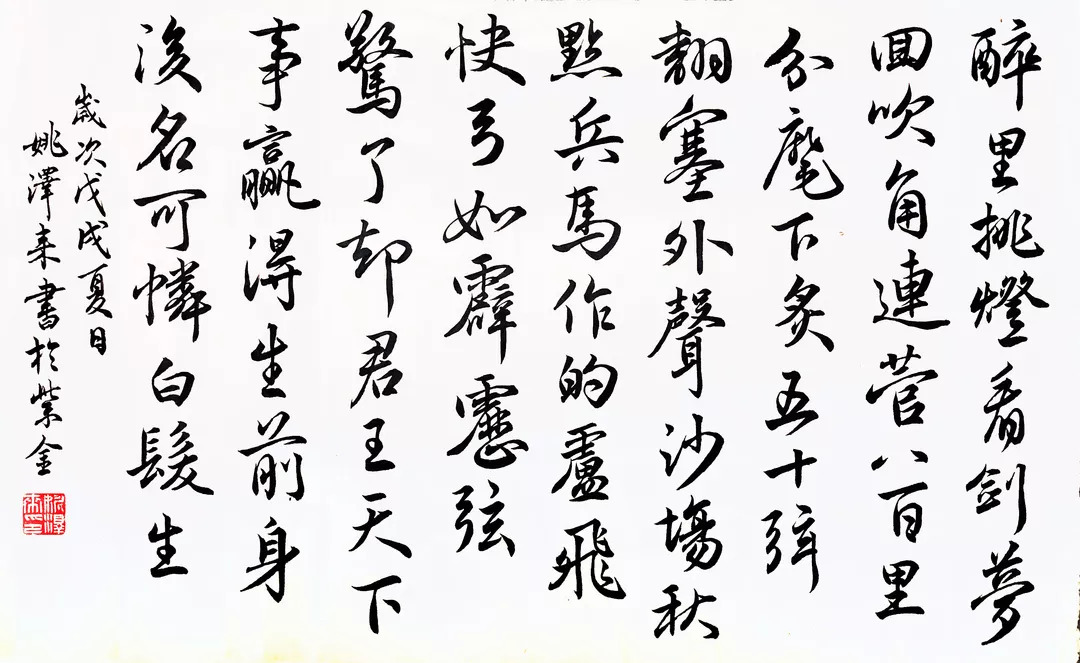 醉里挑燈看劍夢
回吹角連营八百里
分麾下炙五十弦
翻塞外聲沙場秋
點兵馬作的盧飛
快弓如霹靂弦
驚了却君王天下
事贏得生前身
後名可憐白髮生
歲次戊戌夏日
姚澤来書於紫金